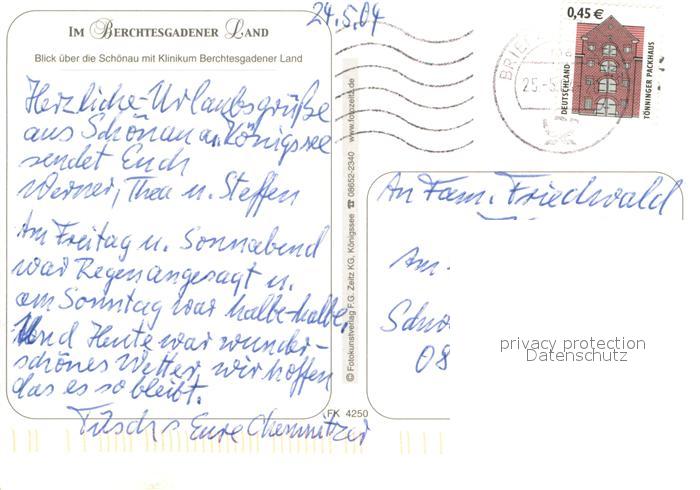 24.5.04
IM BERCHTESGADENER LAND
Blick über die Schönau mit Klinikum Berchtesgadener Land
Herzliche Urlaubsgrüße
aus Schönau a. Königssee
sendet Euch
Werner, Thea u. Steffen
Am Freitag u. Sonnabend
war Regen angesagt u.
am Sonntag war halbe-halbe,
Und Heute war wunder-
schönes Wetter, wir hoffen
das es so bleibt.
Tüsch s Eure Chemnitzer
FK 4250
© Fotokunstverlag F.G. Zeitz KG, Königssee ☎ 08652-2340 www.fotozeitz.de
BRIEF
25.-5.
0,45 €
DEUTSCHLAND
TÖNNINGER PACKHAUS
An Fam. Friedwald
Am
Schw
08
privacy protection
Datenschutz